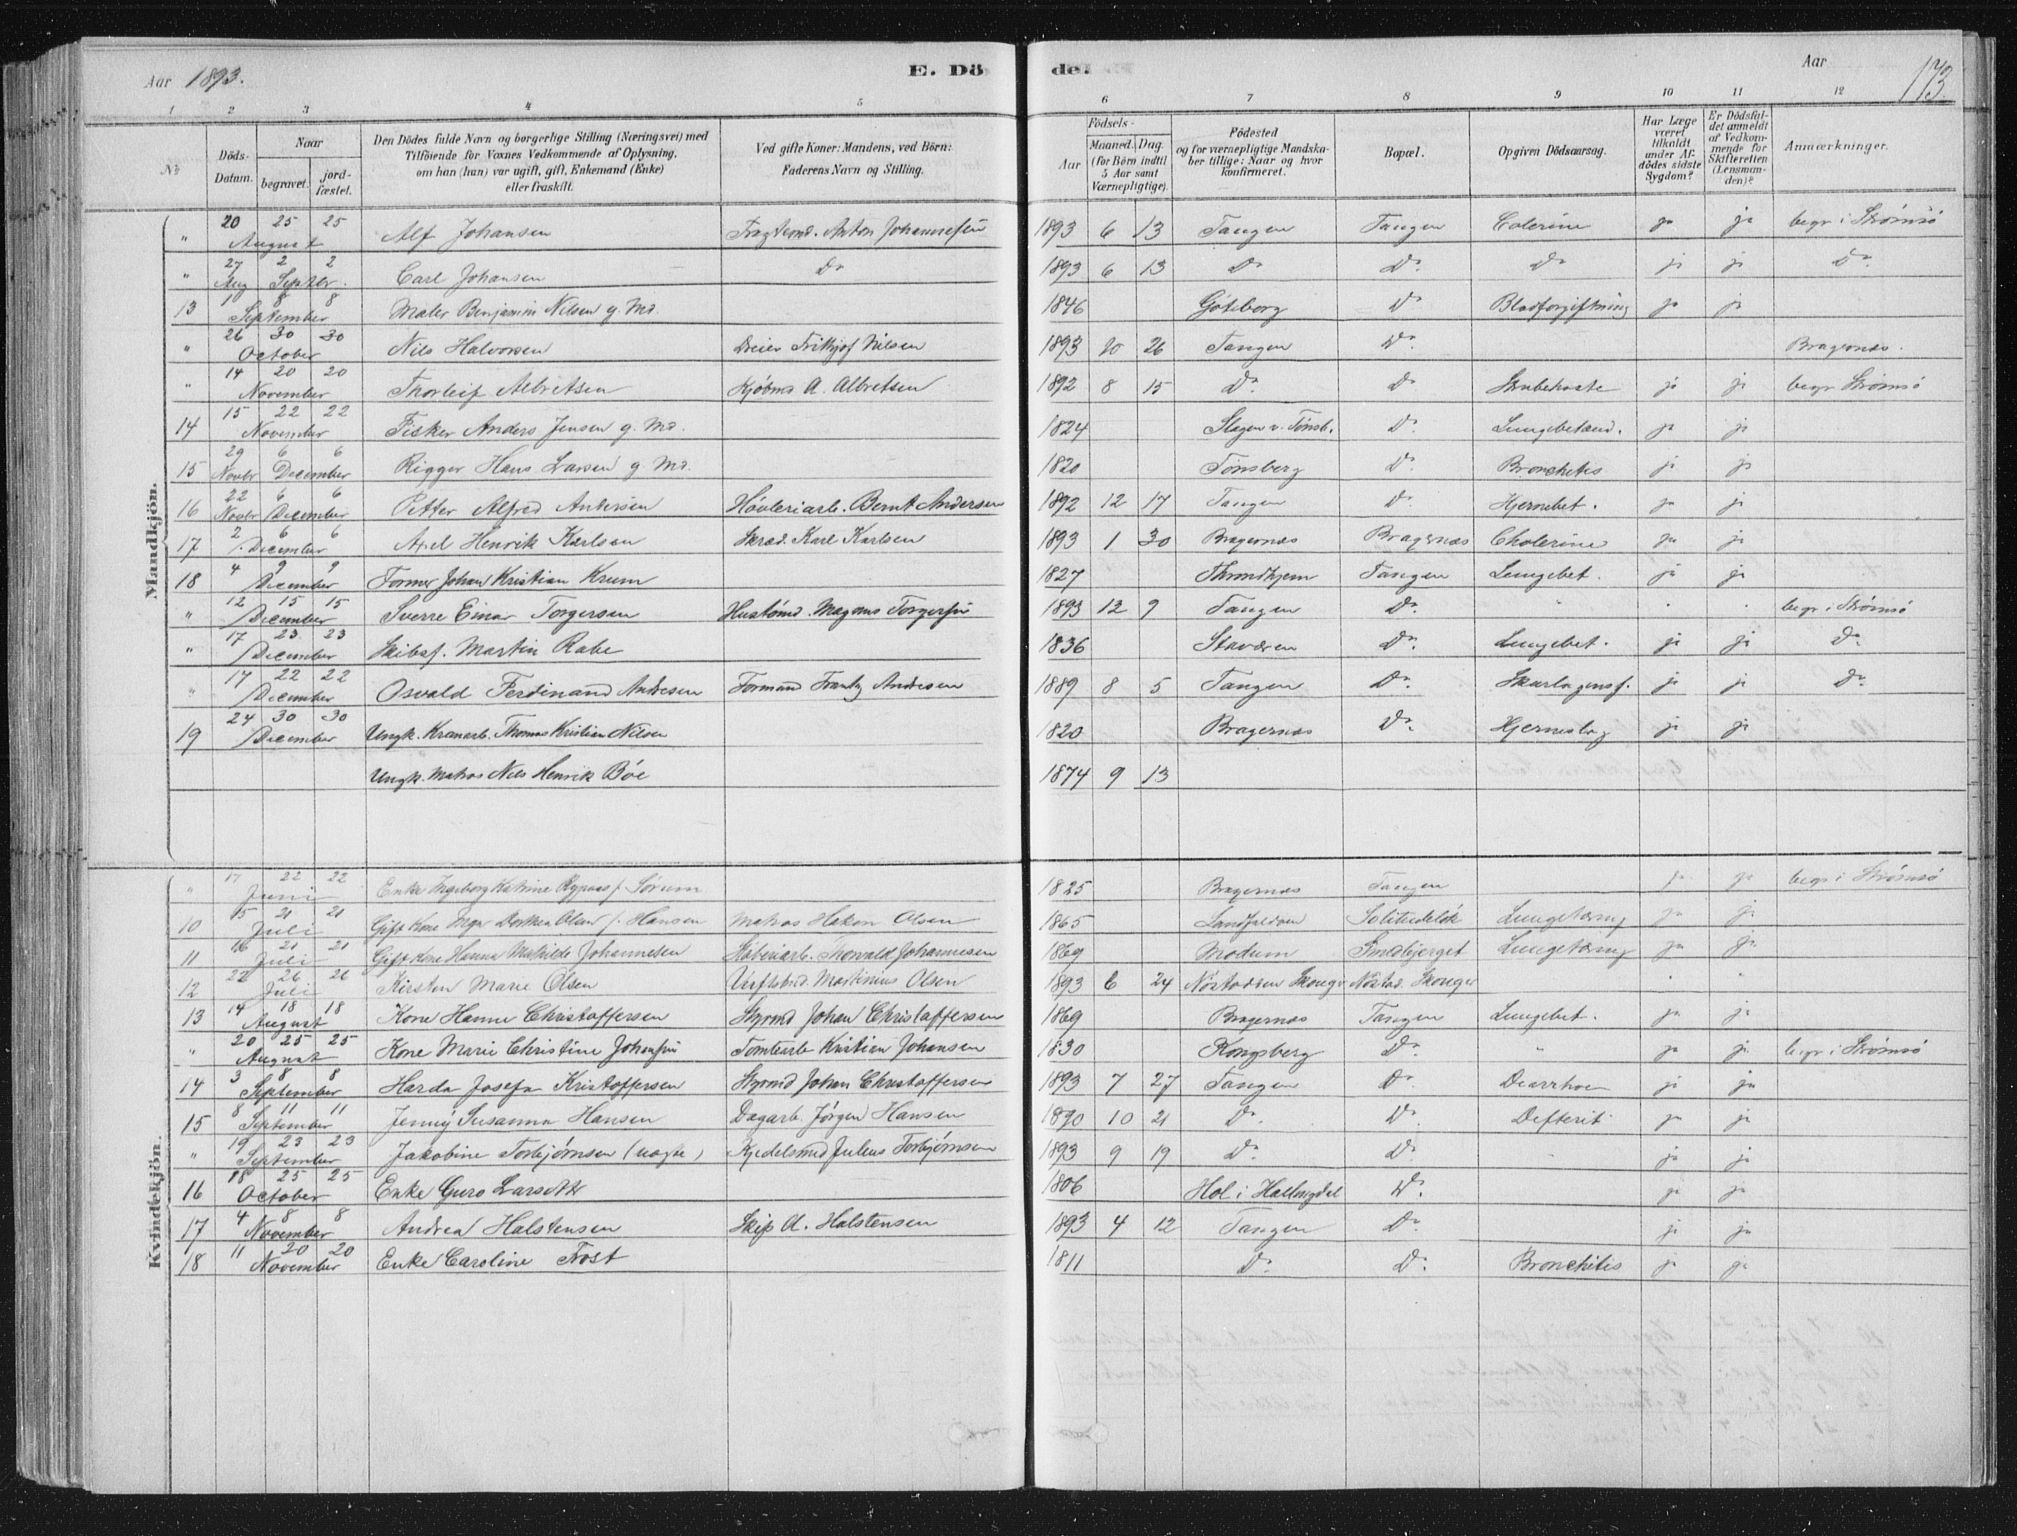 Aar 1893. E. Dö de. Aar 173.
1 2 3 4 5 6 7 8 9 10 11 12
№ Döds-Datum. Naar begravet. jordfæstet. Den Dödes fulde Navn og borgerlige Stilling (Næringsvei) med Tilföiende for Voxnes Vedkommende af Oplysning, om han (hun) var ugift, gift, Enkemand (Enke) eller fraskilt. Ved gifte Koner: Mandens, ved Börn: Faderens Navn og Stilling. Födsels- Aar Maaned. Dag. (for Börn indtil 5 Aar samt Værnepligtige). Födested og for værnepligtige Mandskaber tillige: Naar og hvor konfirmeret. Bopæl. Opgiven Dödsaarsag. Har Læge været tilkaldt under Afdödes sidste Sygdom? Er Dödsfaldet anmeldt af Vedkommende for Skifteretten (Lensmanden)? Anmærkninger.
Mandkjön.
" 20 25 25 August Alf Johansen Anton Johannesen 1893 6 13 Tangen Tangen Colerine ja ja begr i Strømsö
" 27 2 2 Aug Septbr. Carl Johansen Do 1893 6 13 Do Do Do ja ja Do
13 1 8 8 September Maler Benjamin Nilsen g. Md. 1846 Göteborg Do Blodforgiftning ja ja
" 26 30 30 October Nils Halvorsen Dreier Frithjof Nilsen 1893 20 26 Tangen Do Bragernæs.
" 14 20 20 November Thorleif Albretsen Kjöbmd A. Albretsen 1892 8 15 Do Do Strubehoste ja ja begr Strømsö
14 15 22 22 November Fisker Anders Jensen g. Md. 1824 Slagen v. Tønsb. Do Lungebetænd. ja ja
15 29 6 6 Novbr December Rigger Hans Larsen g. Md. 1820 Tønsberg Do Bronchitis ja ja
16 22 6 6 Novbr December Petter Alfred Andersen Høvleriarb. Bernt Andersen 1892 12 17 Tangen Do Hjernebet. ja ja
17 2 6 6 December Axel Henrik Karlsen Skræd. Karl Karlsen 1893 1 30 Bragernæs Bragernæs Cholerine ja ja
18 4 9 9 December Former Johan Kristian Krum 1827 Throndhjem Tangen Lungebet. ja ja
" 12 15 15 December Sverre Einar Torgersen Hustømd. Magnus Torgersen 1893 12 9 Tangen Do " " " begr i Strømsö
" 17 23 23 December Skibsf. Martin Rabe 1836 Staværn Do Lungebet. ja ja Do
" 17 22 22 December Osvald Ferdinand Andresen Formand Frantz Andresen 1889 8 5 Tangen Do Skarlagensf. ja ja Do
19 24 30 30 December Ungk. Kranarb. Thomas Kristian Nilsen 1820 Bragernæs Do Hjerneslag ja ja
Ungk. Matros Nils Henrik Bøe 1874 9 13
Kvindekjön.
" 17 22 22 Juni Enke Ingeborg Katrine f. Sørum 1825 Bragernæs Tangen ja ja begr i Strømsö
10 15 21 21 Juli Gift Kone Dorthea Olsen f. Hansen Matros Hakon Olsen 1865 Solitudeløk Lungetæring ja ja
11 16 21 21 Juli Gift Kone Hanna Mathilde Johannesen Thorvald Johannesen 1869 Modum Smedbjerget Lungetæring ja ja
12 22 26 26 Juli Kirsten Marie Olsen Martinius Olsen 1893 6 24 Nøstodden Skoger Nøstod. Skoger " "
13 14 18 18 August Kone Hanna Christoffersen Styrmd Johan Christoffersen 1869 Bragernæs Tangen Lungebet. ja ja
" 20 25 25 August Kone Marie Christine Johansen Tomtearb Kristian Johansen 1830 Kongsberg Do " ja ja begr i Strømsö
14 3 8 8 September Harda Josefa Kristoffersen Styrmd Johan Christoffersen 1893 7 27 Tangen Do Diarrhoe ja ja
15 8 11 11 September Jenny Susanna Hansen Dagarb. Jørgen Hansen 1890 10 21 Do Do Defterit ja ja
" 19 23 23 September Jakobine Torbjørnsen (uægte) Kjedelsmed Julius Torbjørnsen 1893 9 19 Do Do ja ja
16 18 25 25 October Enke Guro Larsdtr 1806 Hol i Hallingdal Do ja ja
17 4 8 8 November Andrea Halstensen Skip A. Halstensen 1893 4 12 Tangen Do ja ja
18 11 20 20 November Enke Caroline Frost 1811 Do Do Bronchitis ja ja